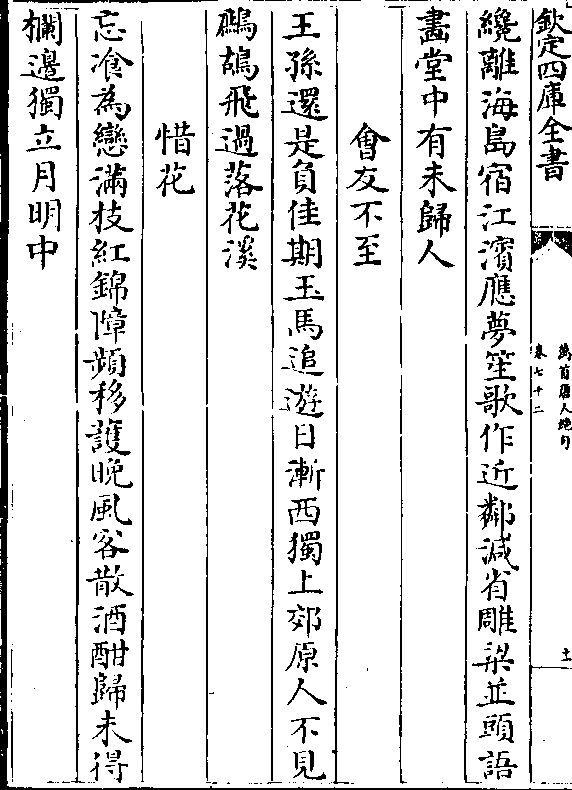 欽定四庫全書
萬首唐人絶句
卷七十二
十一
纔離海島宿江濱應夢笙歌作近鄰減省雕梁並頭語
畵堂中有未歸人
會友不至
王孫還是負佳期玉馬追遊日漸西獨上郊原人不見
鷓鴣飛過落花溪
惜花
忘飡為戀滿枝紅錦障頻移護晚風客散酒酣歸未得
欄邊獨立月明中